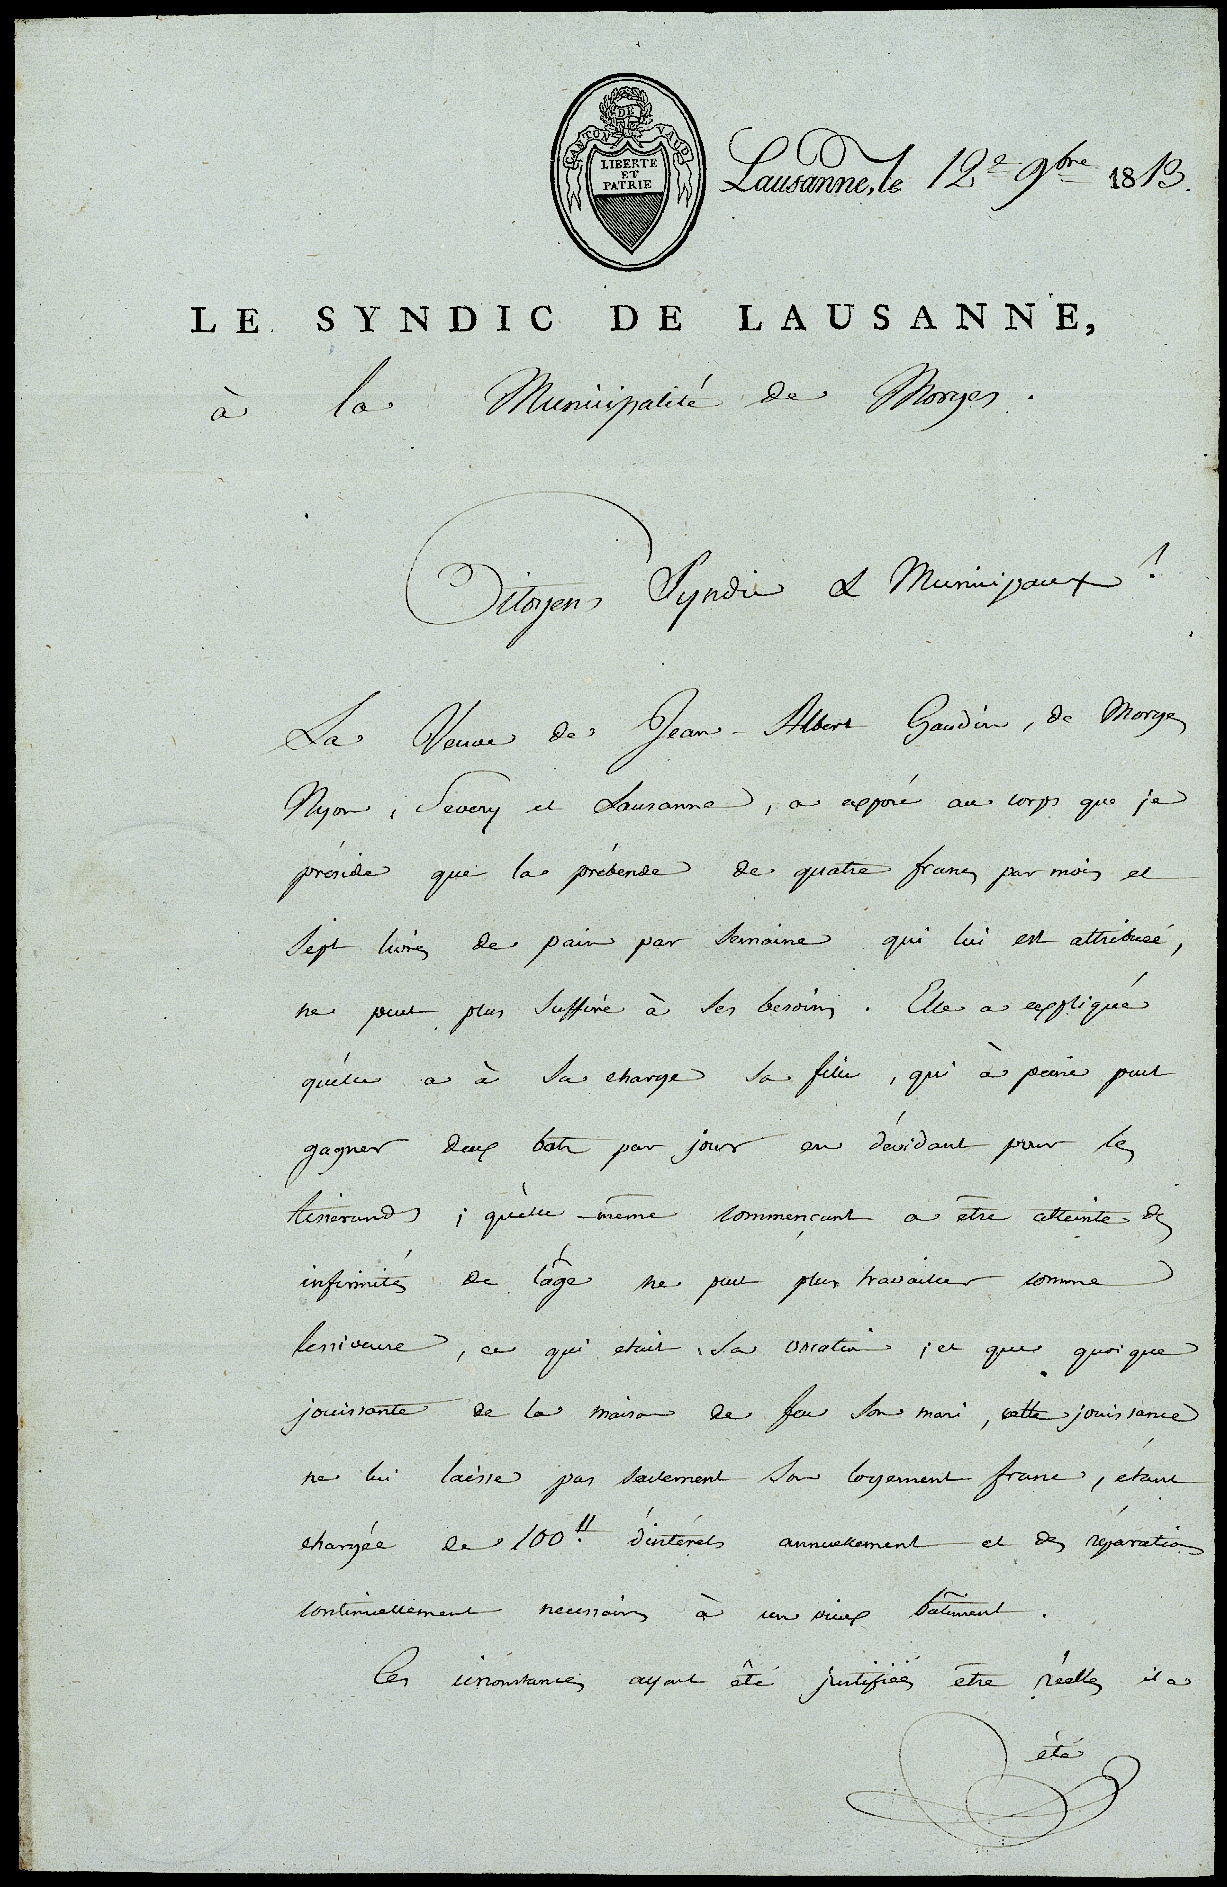 CANTON DE VAUD
LIBERTE
ET
PATRIE
Lausanne, le 12e 9bre 1813.
LE SYNDIC DE LAUSANNE,
à la Municipalité de Morges.
Citoyens Syndic & Municipaux!
La Veuve de Jean-Albert Gaudin, de Morges
Nyon, Severy et Lausanne, a exposé au corps que je
préside que la prébende de quatre francs par mois et
sept livres de pain par semaine qui lui est attribuée,
ne peut plus suffire à ses besoins. Elle a expliqué
qu'elle a à sa charge sa fille, qui à peine peut
gagner deux batz par jour en dévidant pour les
tisserands; qu'elle-même commençant a être atteinte des
infirmités de l'âge ne peut plus travailler comme
lessiveuse, ce qui etait sa vocation; et que quoique
jouissante de la maison de feu son mari, cette jouissance
ne lui laisse pas seulement son logement franc, étant
chargée de 100 ll. d'intérêts annuellement et des réparations
continuellement necessaires à un vieux bâtiment.
Ces circonstances ayant été justifiées être réelles il a
été